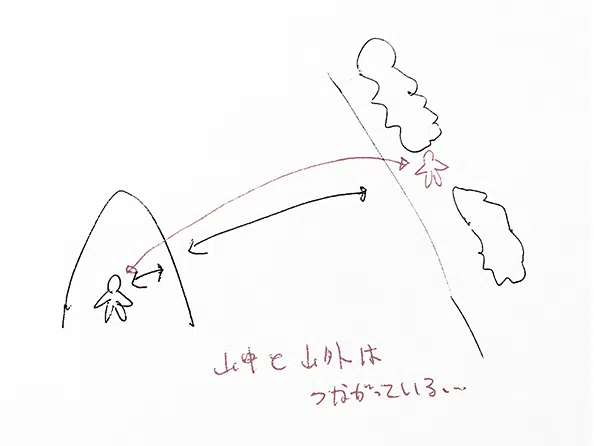 山中と山外は
つながっている...